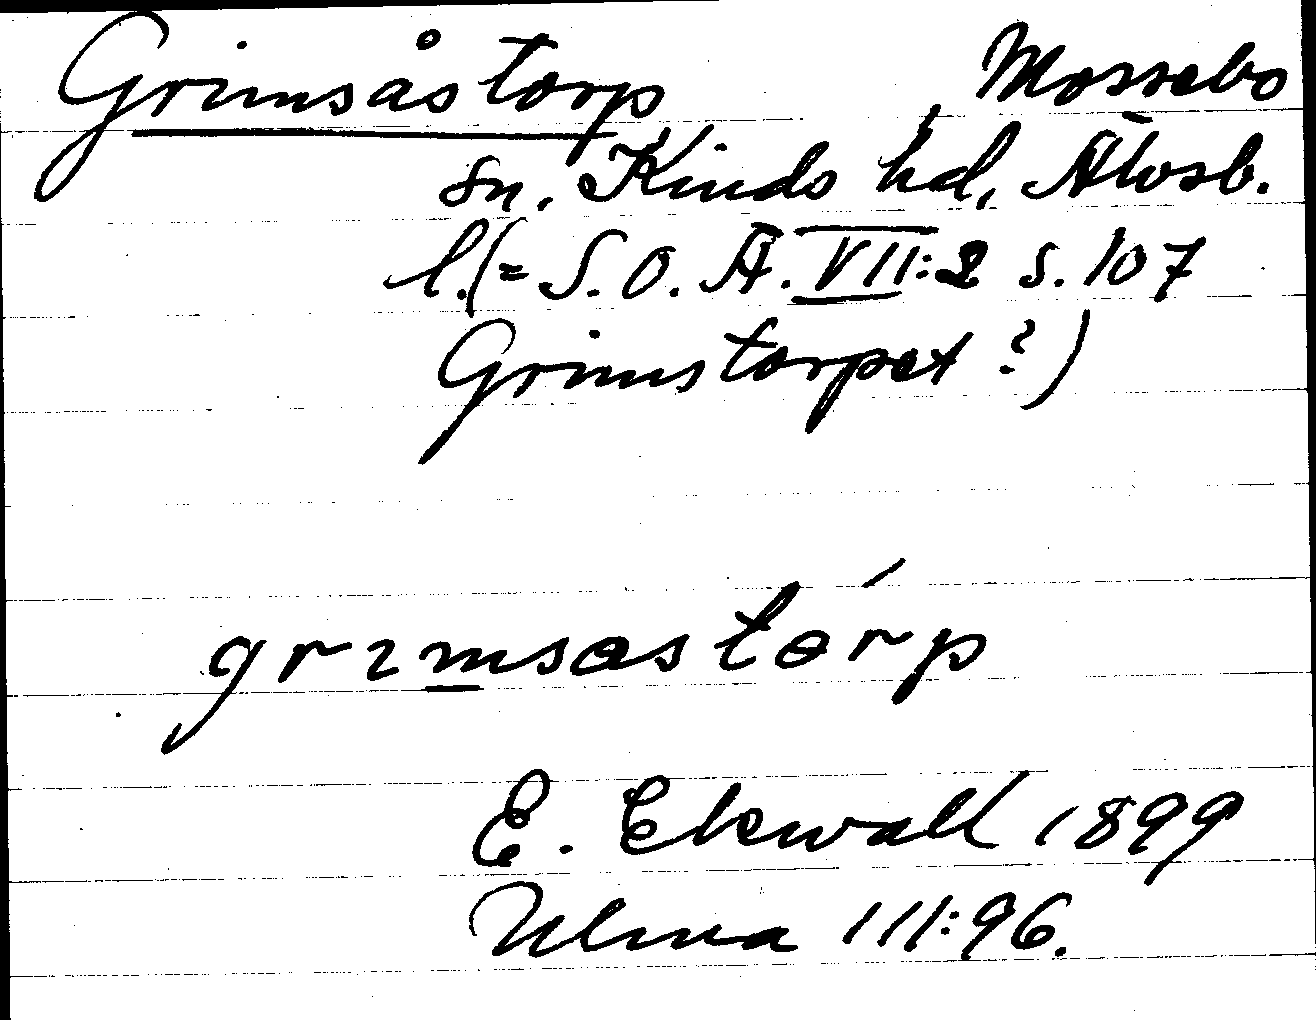 Grimsåstorp Mossebo
sn. Kinds hd, Älvsb.
l. (= S.O.Ä. VII:2 s. 107
Grimstorpet?)
grımsəstórp
E. Ekwall 1899
Ulma 111:96.